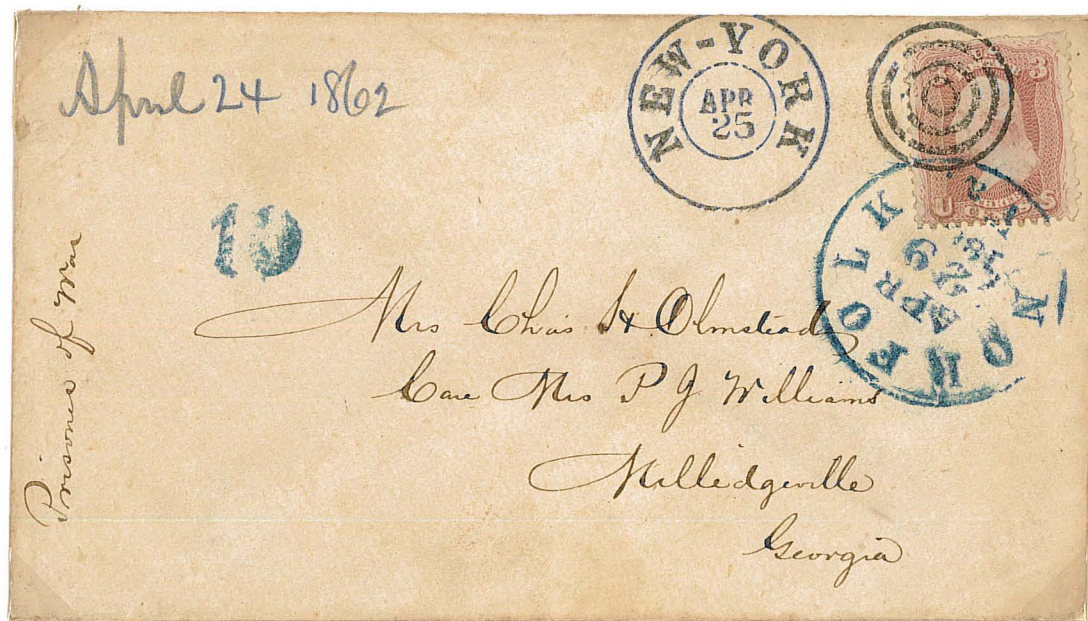 April 24 1862
NEW-YORK
APR
25
3
U CENTS S
10
NORFOLK
APR
29
1862
Prisoner of War
Mrs Chas H Olmstead
Care Mrs P J Williams
Milledgeville
Georgia